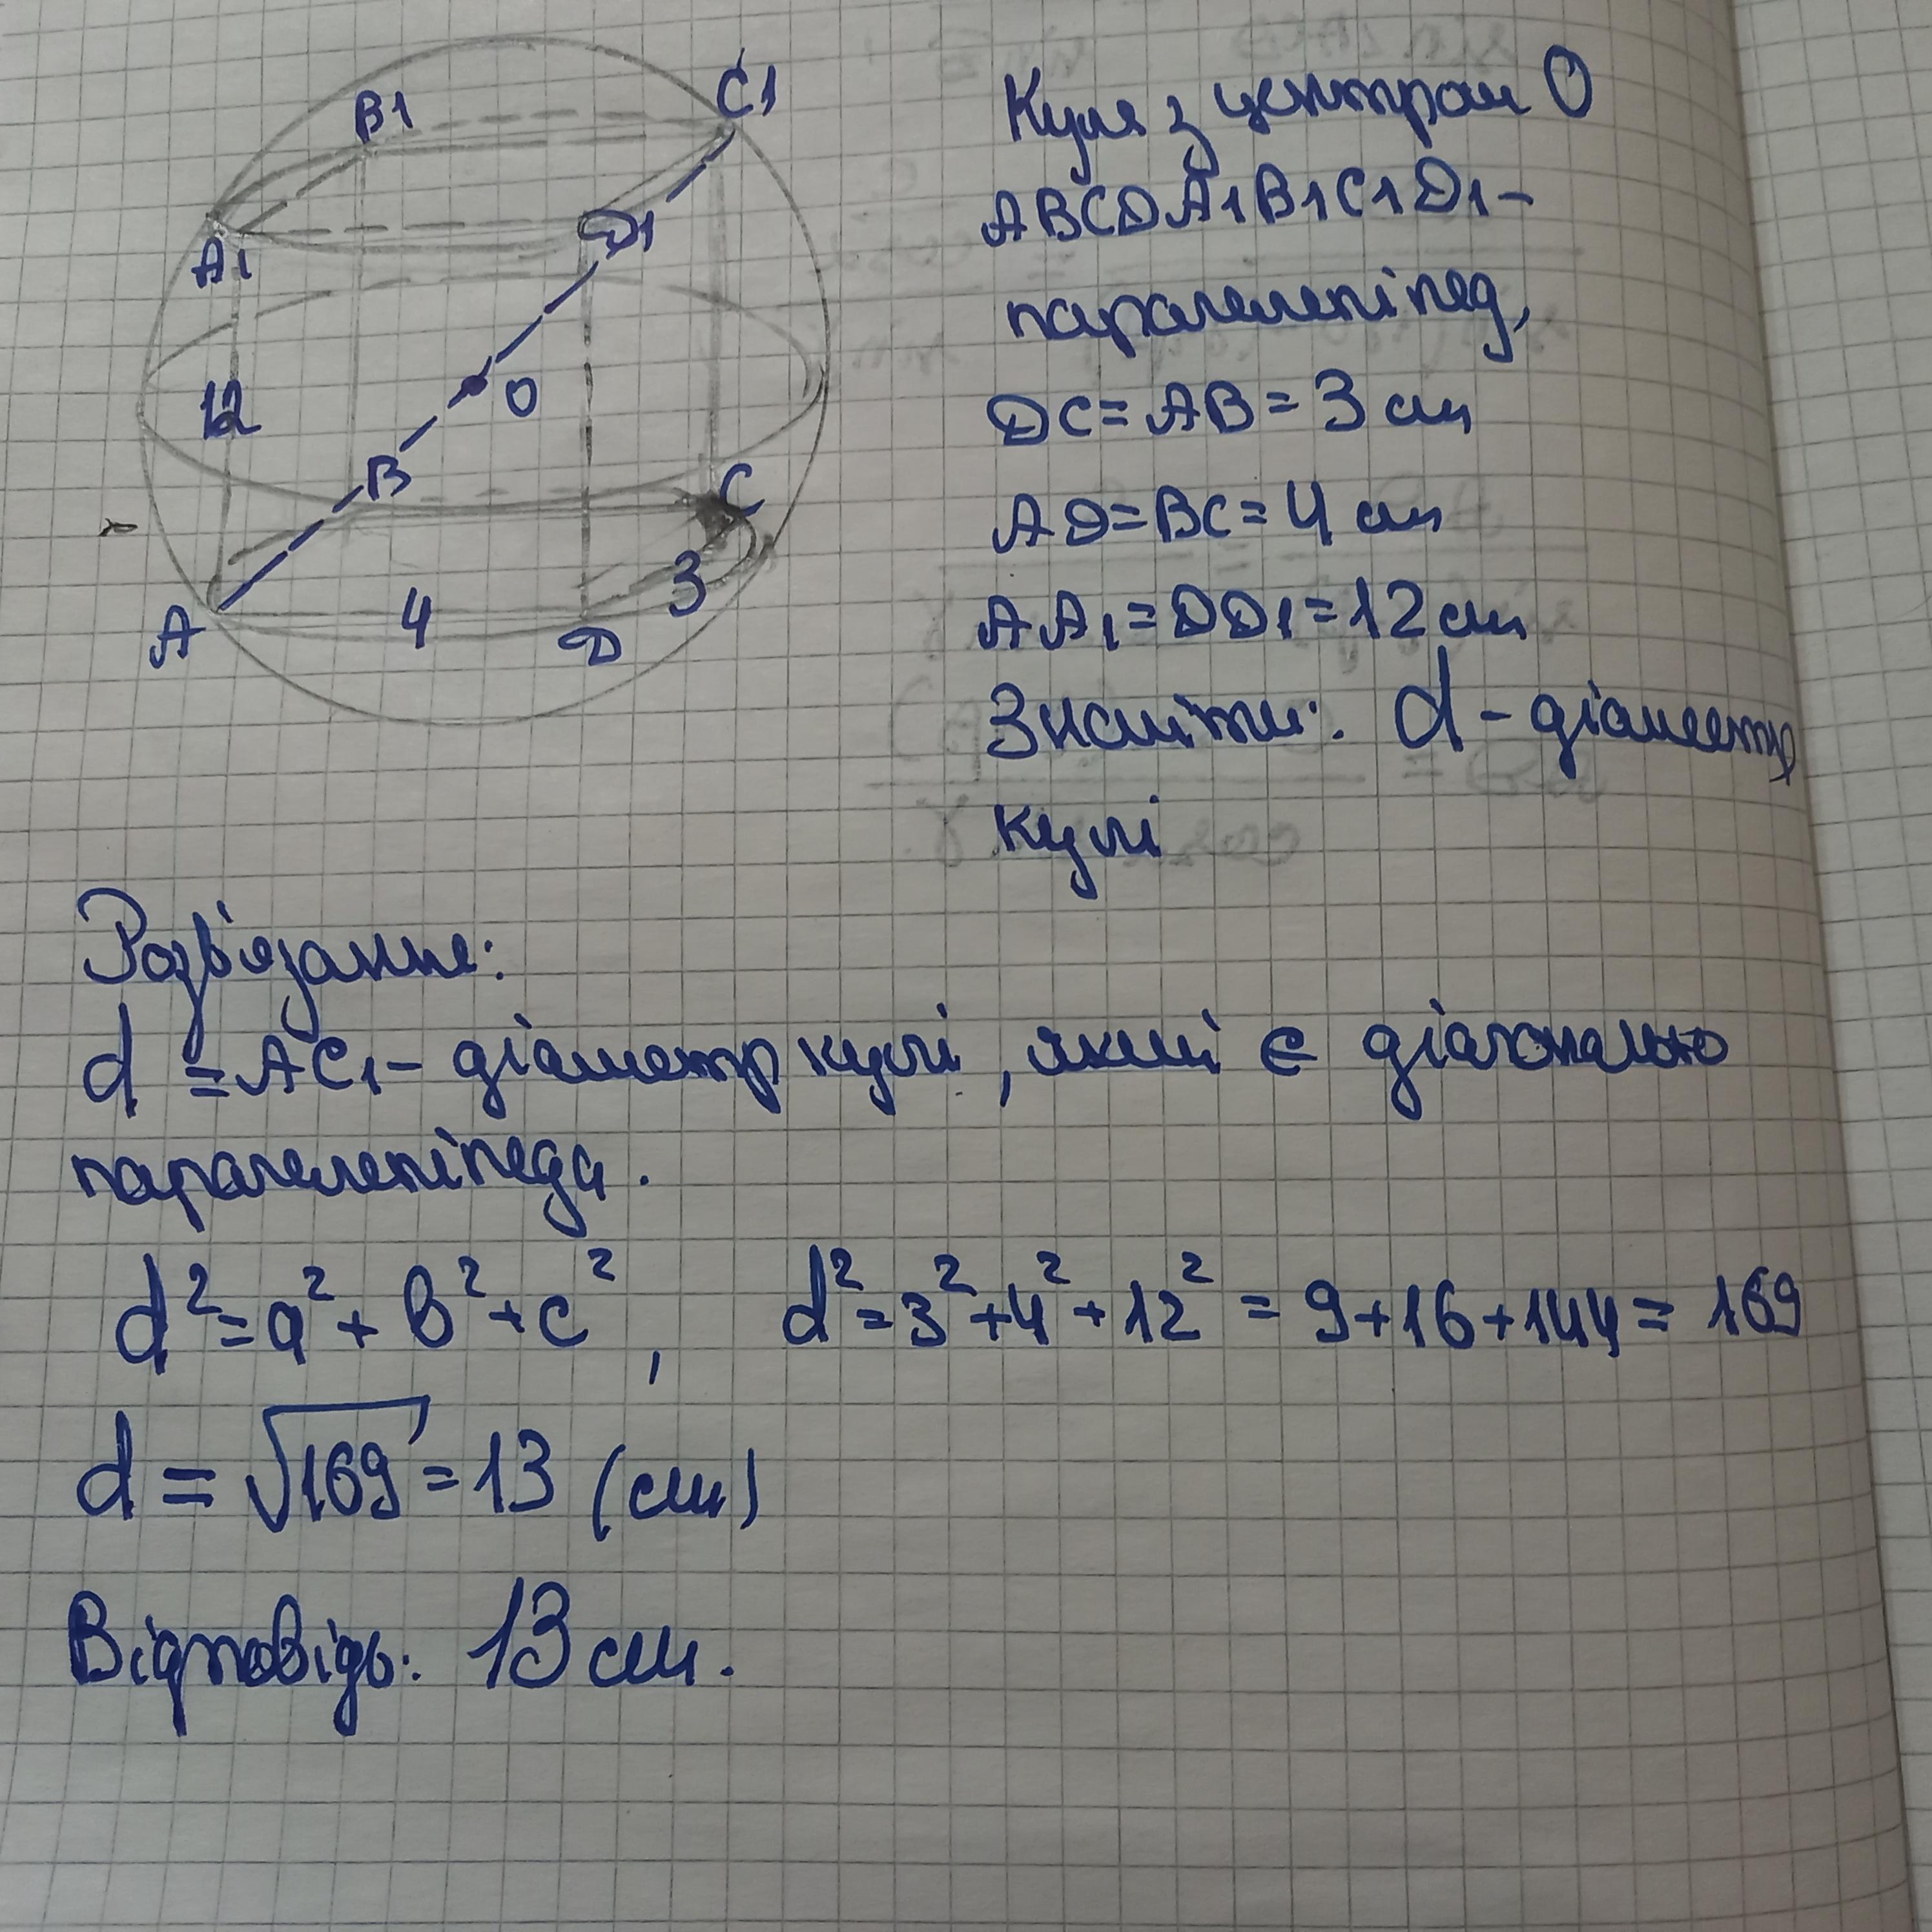 B1
C1
A1
D1
12
O
B
C
A
4
D
3
Куля з центром O
ABCDA1B1C1D1-
паралелепіпед,
DC=AB=3 см
AD=BC=4 см
AA1=DD1=12 см
Знайти: d - діаметр
кулі
Розв'язання:
d =AC1- діаметр кулі, який є діагоналлю
паралелепіпеда.
d²=a²+b²+c², d²=3²+4²+12²=9+16+144=169
d=√169=13 (см)
Відповідь: 13 см.